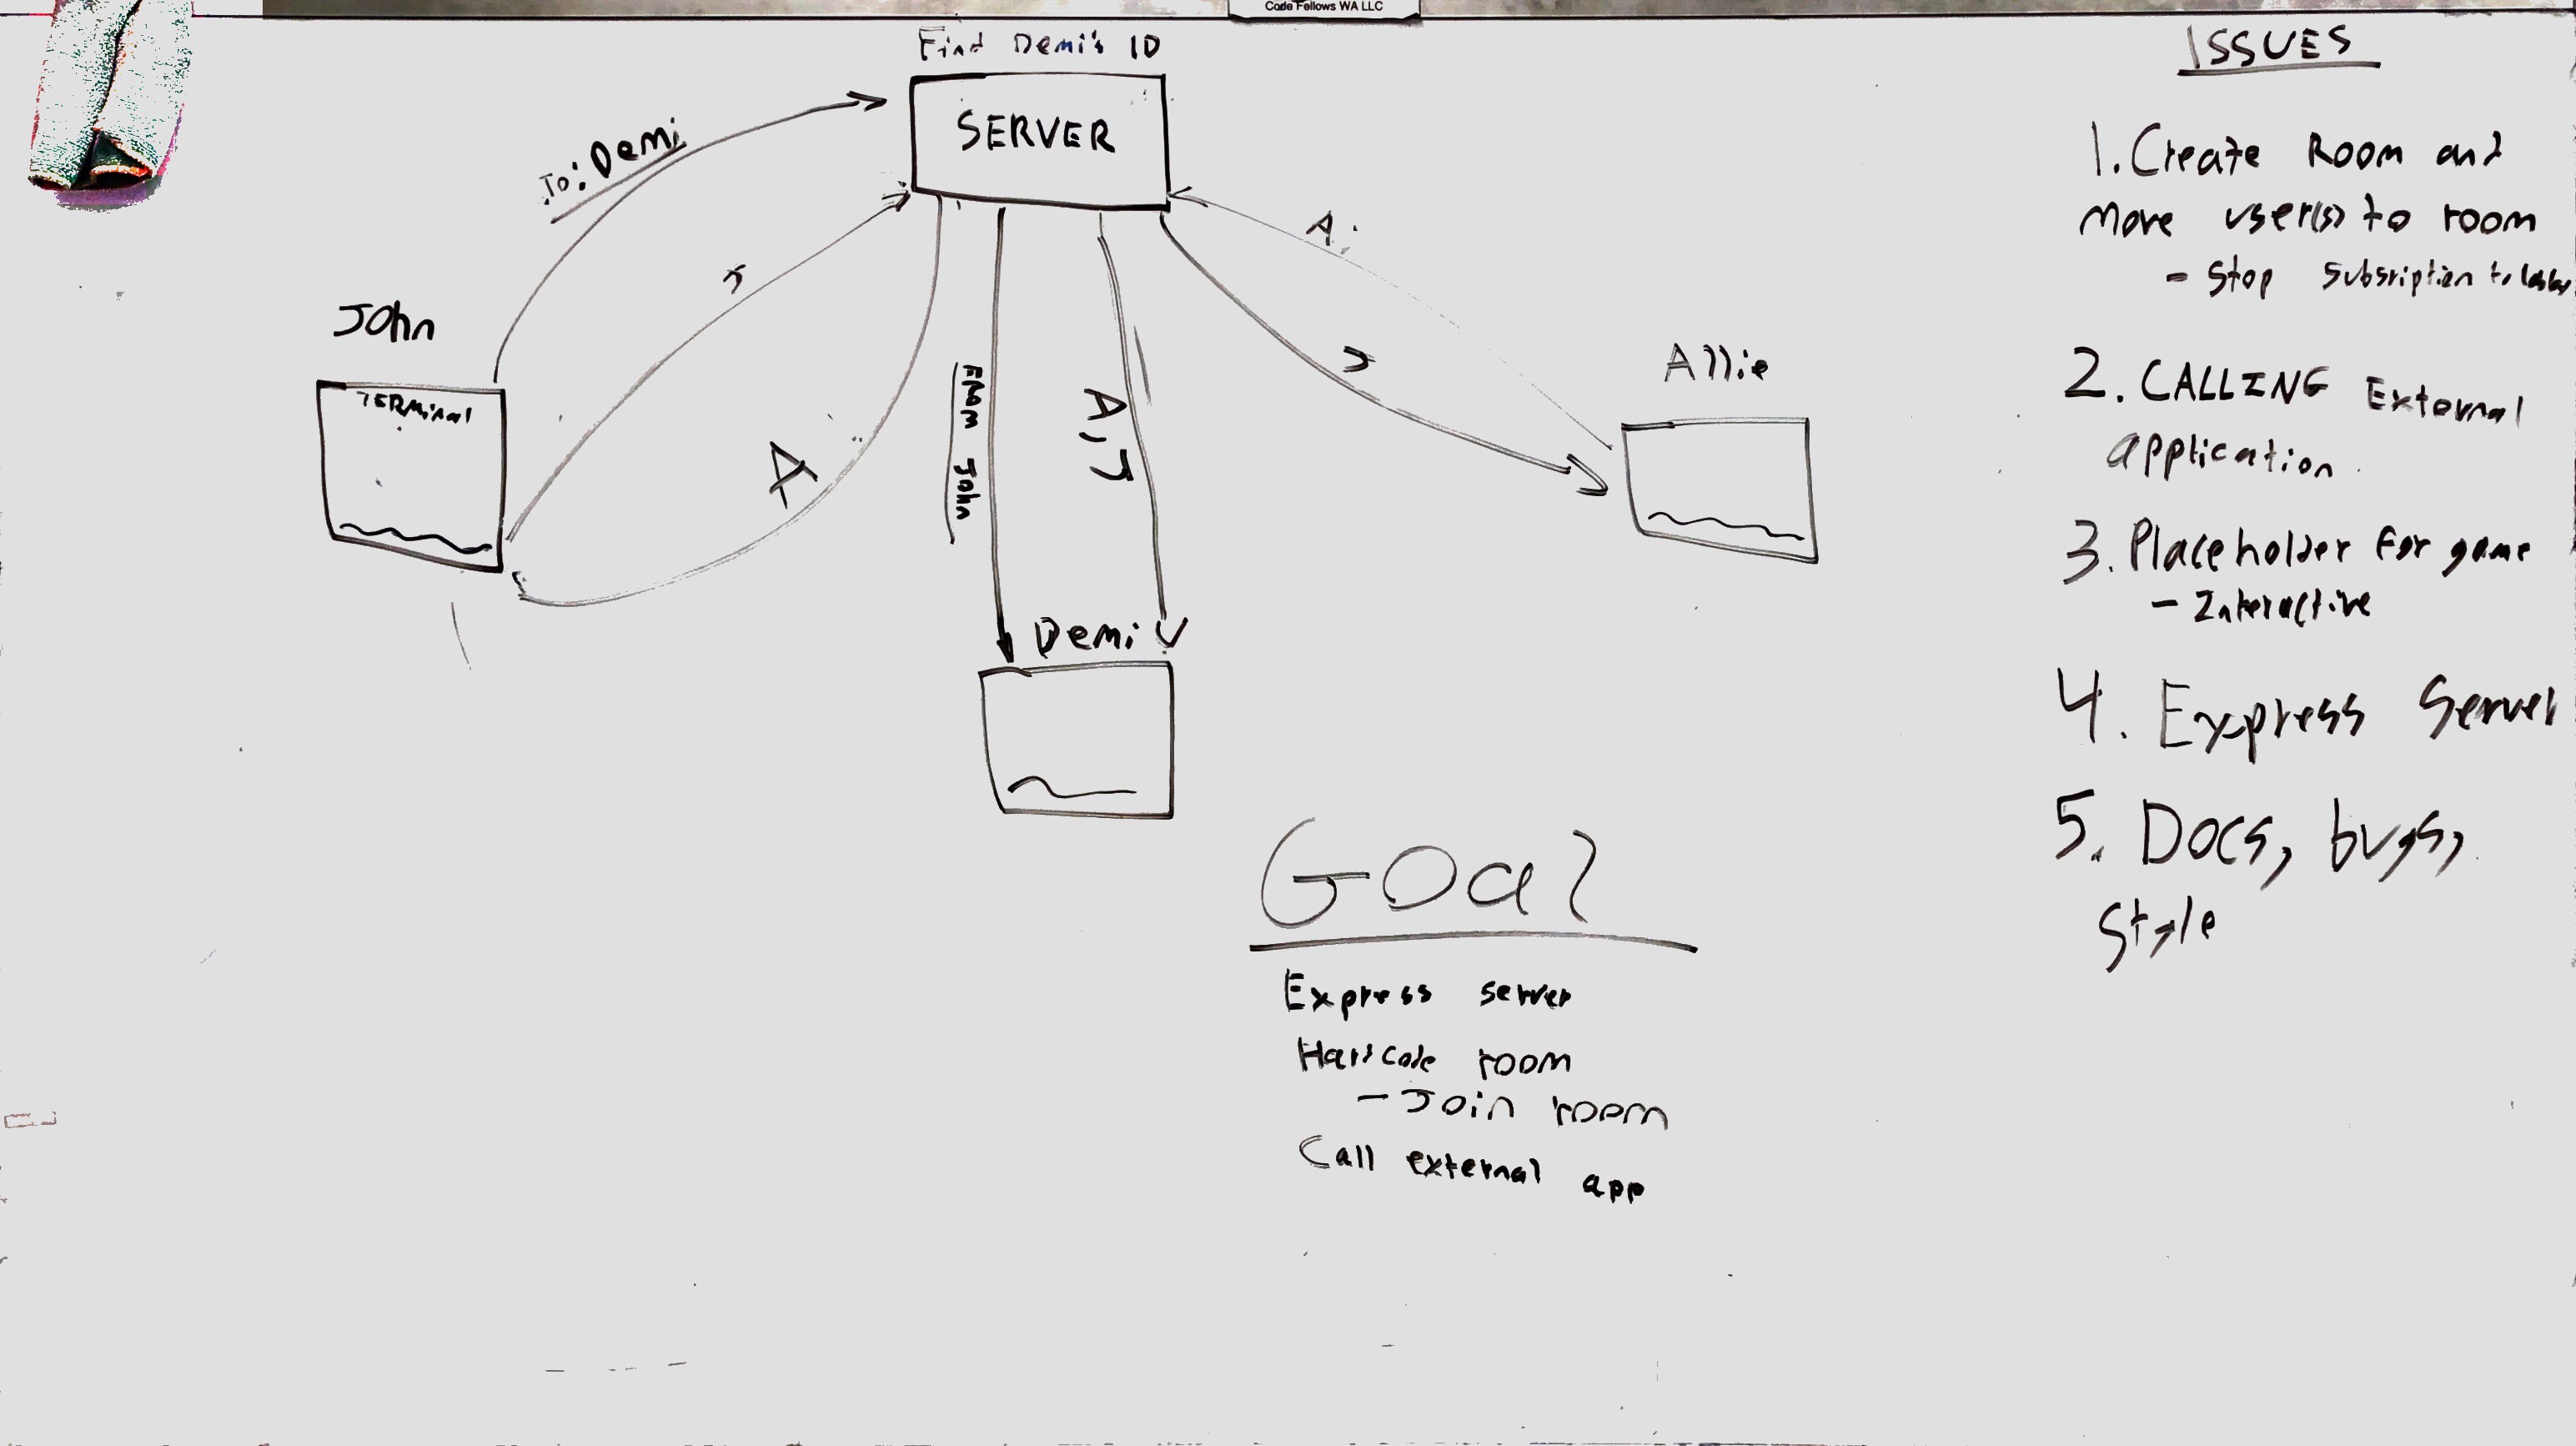 Code Fellows WA LLC
Find Demi's ID
SERVER
To: Demi
John
TERMinal
J
A
FROM John
A, J
A
J
Allie
Demi
GOal
Express server
Hardcode room
- Join room
Call external app
ISSUES
1. Create Room and
Move user(s) to room
- Stop Subsription to
2. CALLING External
application
3. Placeholder for game
- Interactive
4. Express Server
5. Docs, bugs,
Style